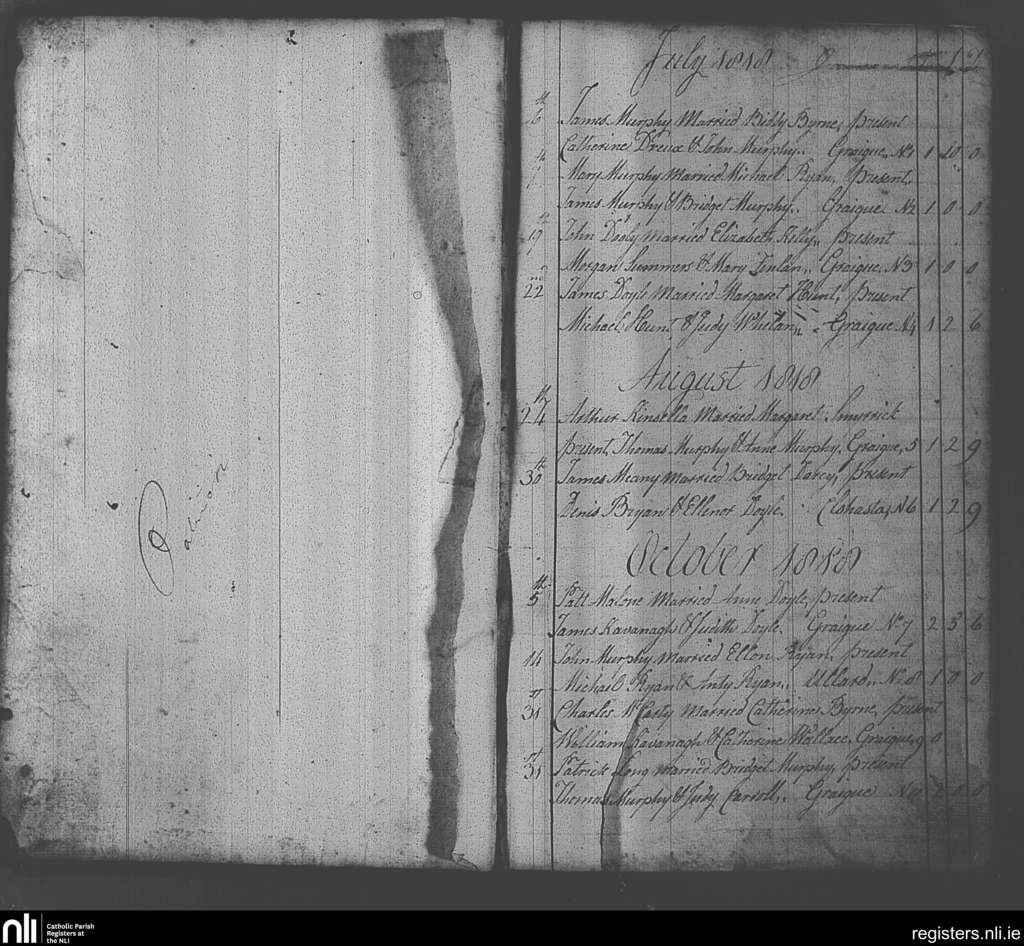 July 1818
6th James Murphy Married Biddy Byrne, present
Catherine Dreux & John Murphy,. Graigue, No1 1 10 0
Mary Murphy Married Michael Ryan, present,
James Murphy & Bridget Murphy,. Graigue No2 1 0 0
19th John Dooly Married Elizabeth Kelly,, present
Morgan Summers & Mary,, Graigue, No3 1 0 0
22nd James Doyle Married Margaret Hunt, present
Michael Hunt & Judy Whelan,, Graigue No4 1 2 6
August 1818
24th Arthur Kinsella Married Margaret
present, Thomas Murphy & Anne Murphy, Graigue, 5 1 2 9
30th James Meany Married Bridget Darcy, present
Denis Bryan & Ellenor Doyle. No6 1 2 9
October 1818
5th Patt Malone Married Anne Doyle, present
James Kavanagh & Judith Doyle. Graigue No7 2 5 6
14 John Murphy Married Ellen Ryan, present
Michael Ryan & Anty Ryan,. Ullard,. No 8 1 0 0
31st Charles McCarty Married Catherine Byrne, present
William Kavanagh & Catherine Wallace. Graigue, 9 0
31st Patrick Long Married Bridget Murphy, present
Thomas Murphy & Judy Carroll,. Graigue No10 2 0 0
nli
Catholic Parish
Registers at
the NLI
registers.nli.ie